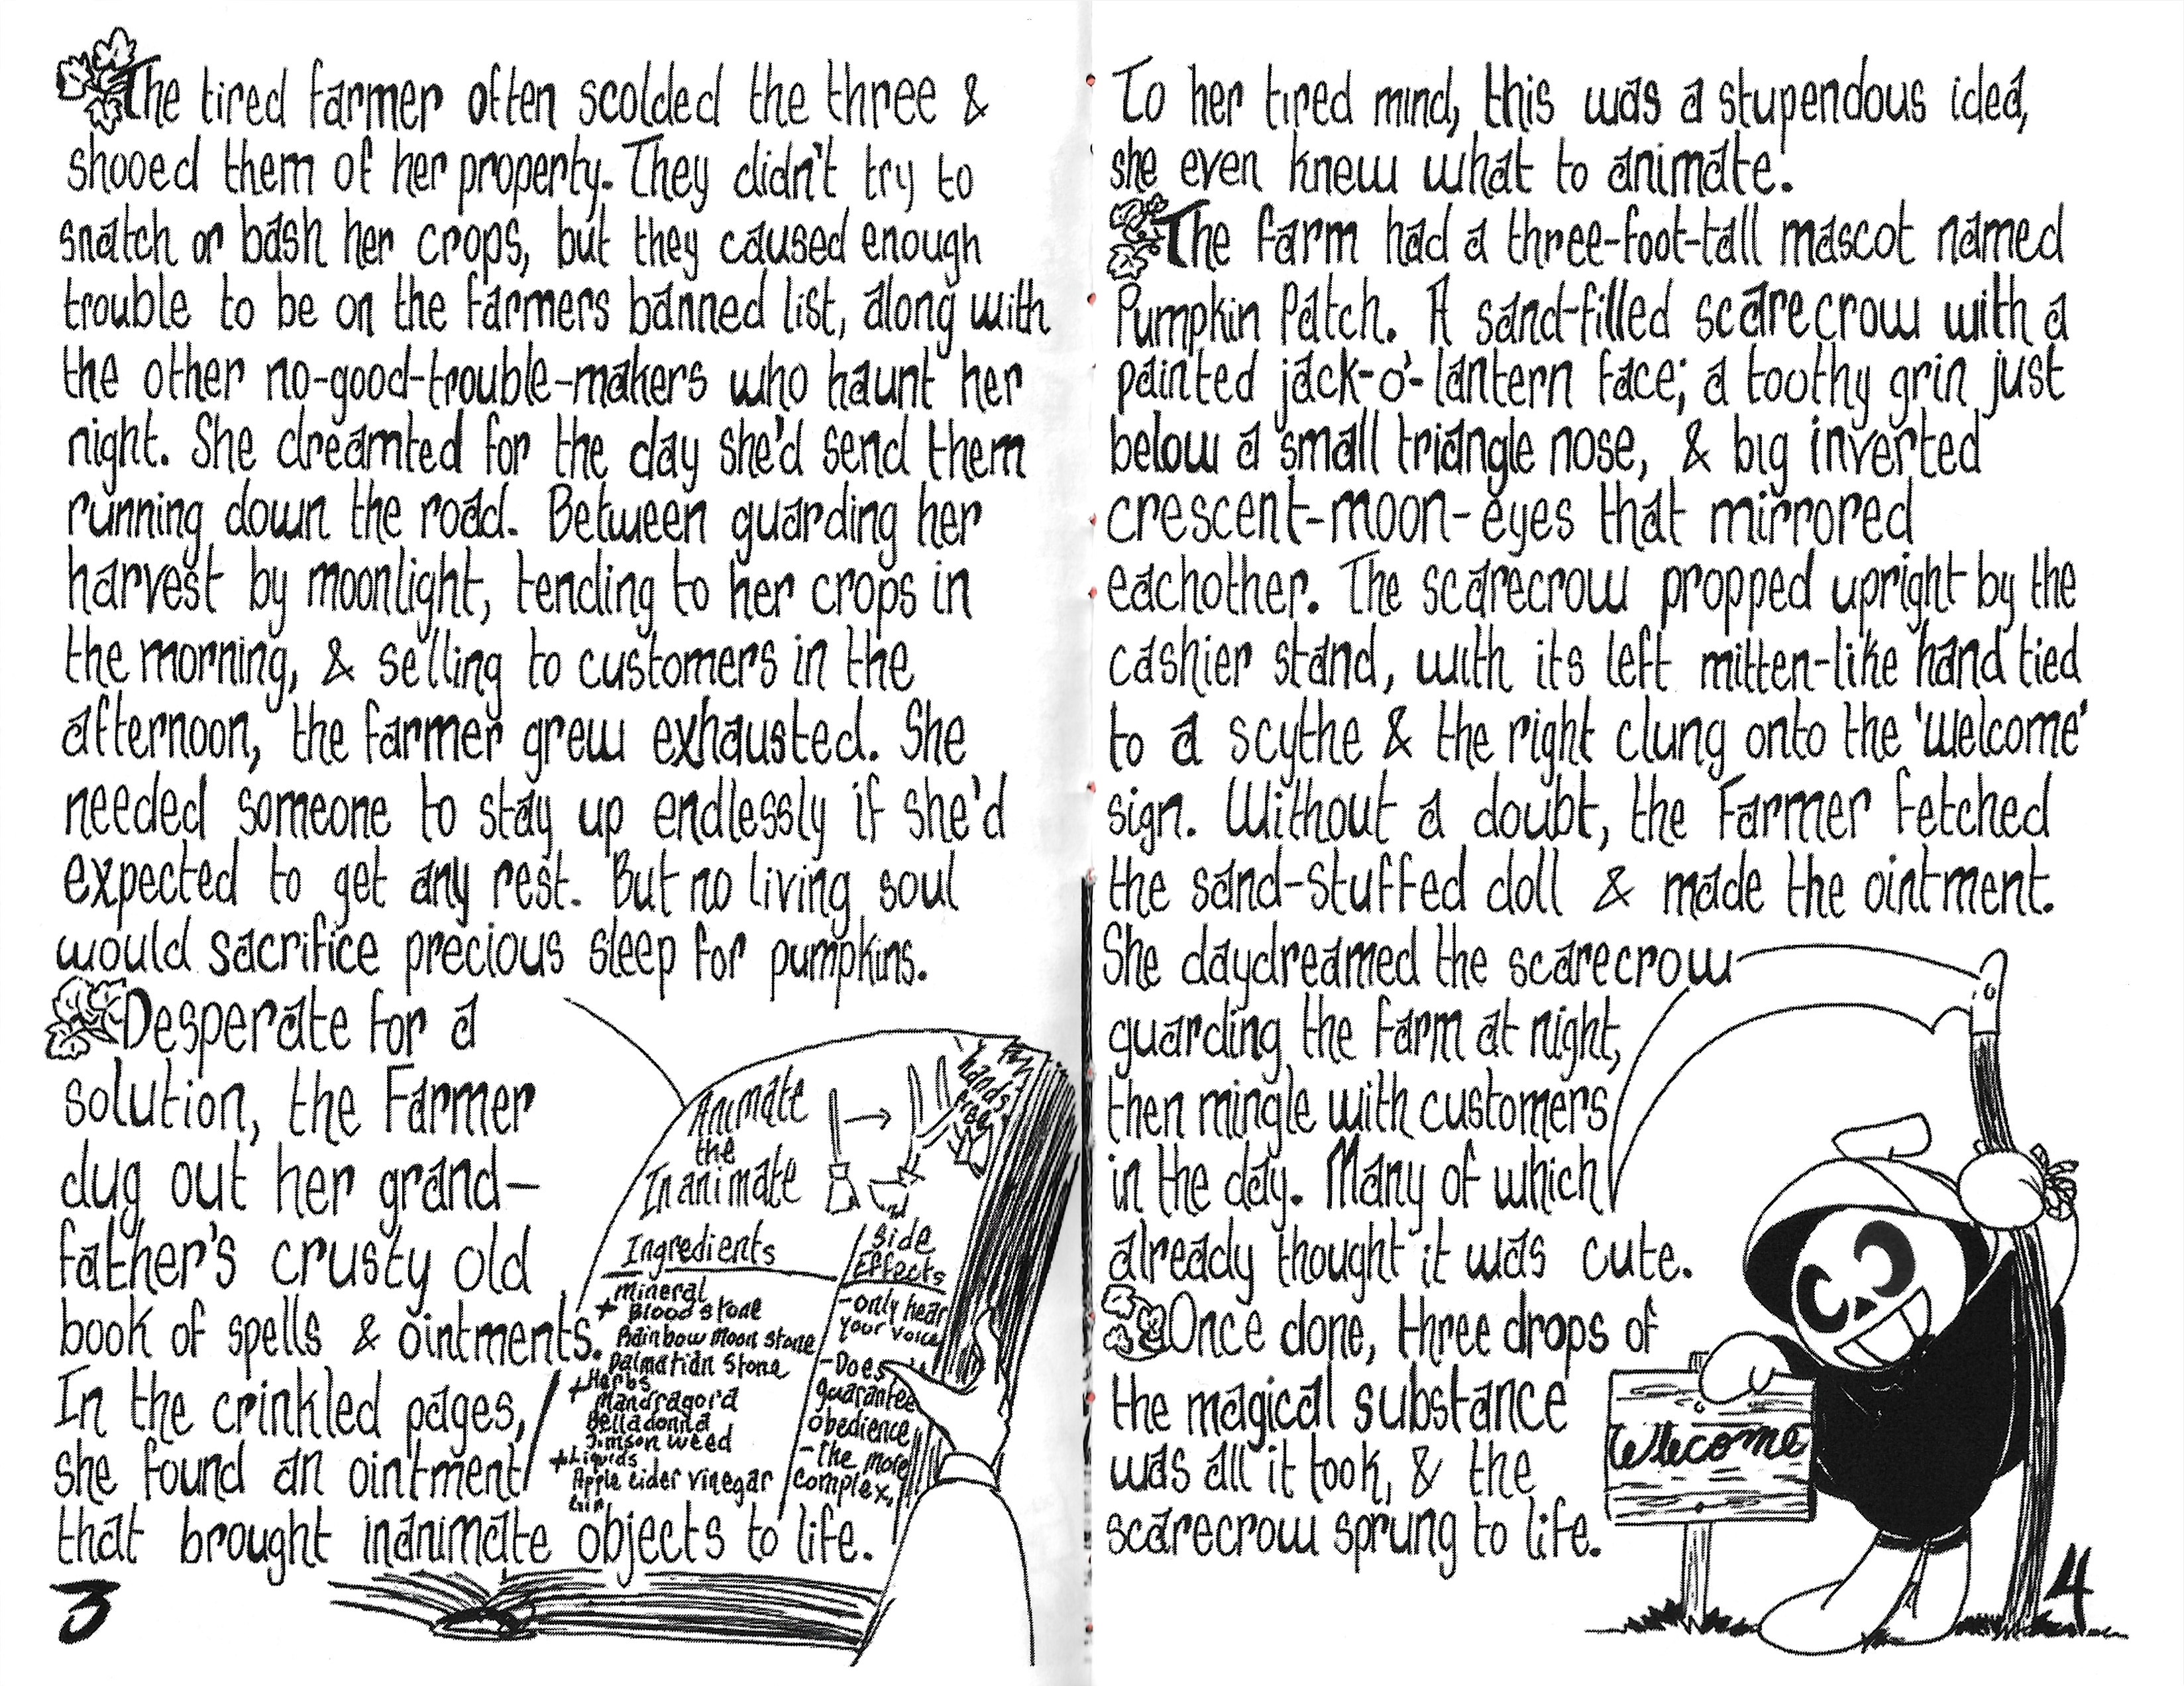 The tired farmer often scolded the three &
shooed them of her property. They didn't try to
snatch or bash her crops, but they caused enough
trouble to be on the farmers banned list, along with
the other no-good-trouble-makers who haunt her
night. She dreamted for the day she'd send them
running down the road. Between guarding her
harvest by moonlight, tending to her crops in
the morning, & selling to customers in the
afternoon, the farmer grew exhausted. She
needed someone to stay up endlessly if she'd
expected to get any rest. But no living soul
would sacrifice precious sleep for pumpkins.
Desperate for a
solution, the Farmer
dug out her grand-
father's crusty old
book of spells & ointments.
In the crinkled pages,
she found an ointment
that brought inanimate objects to life.
Animate
the
Inanimate
hands
free!
Ingredients
Mineral
+ Blood stone
Rainbow Moon stone
Dalmatian Stone
+ Herbs
Mandragora
Belladonna
Jimson weed
+ Liquids
Apple cider vinegar
Side
Effects
-only hear
your voice
-Does
guarantee
obedience
-the more
complex,
3
To her tired mind, this was a stupendous idea,
she even knew what to animate.
The farm had a three-foot-tall mascot named
Pumpkin Patch. A sand-filled scarecrow with a
painted jack-o'-lantern face; a toothy grin just
below a small triangle nose, & big inverted
crescent-moon-eyes that mirrored
eachother. The scarecrow propped upright by the
cashier stand, with its left mitten-like hand tied
to a scythe & the right clung onto the 'welcome'
sign. Without a doubt, the Farmer fetched
the sand-stuffed doll & made the ointment.
She daydreamed the scarecrow
guarding the farm at night,
then mingle with customers
in the day. Many of which
already thought it was cute.
Once done, three drops of
the magical substance
was all it took, & the
scarecrow sprung to life.
Welcome
4